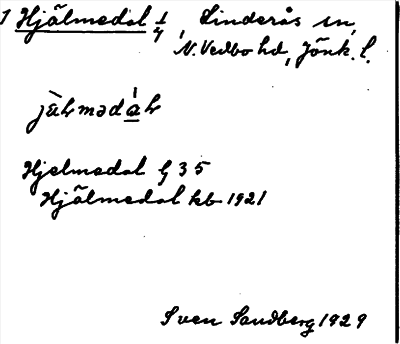 1 Hjälmedal 1/4, Linderås sn,
N. Vedbo hd, Jönk. l.
Hjelmedal G 35
Hjälmedal kb 1921
Sven Sandberg 1929